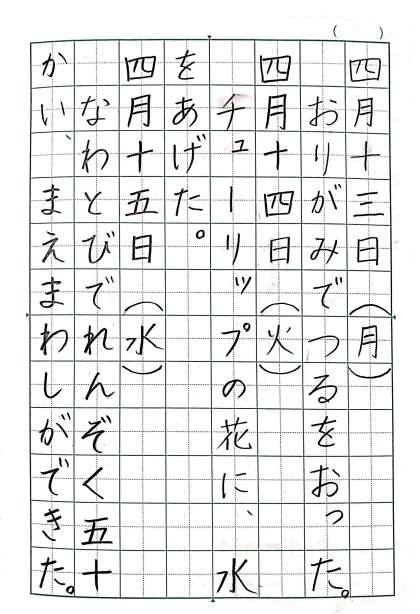 四月十三日（月）
おりがみでつるをおった。
四月十四日（火）
チューリップの花に、水
をあげた。
四月十五日（水）
なわとびでれんぞく五十
かい、まえまわしができた。